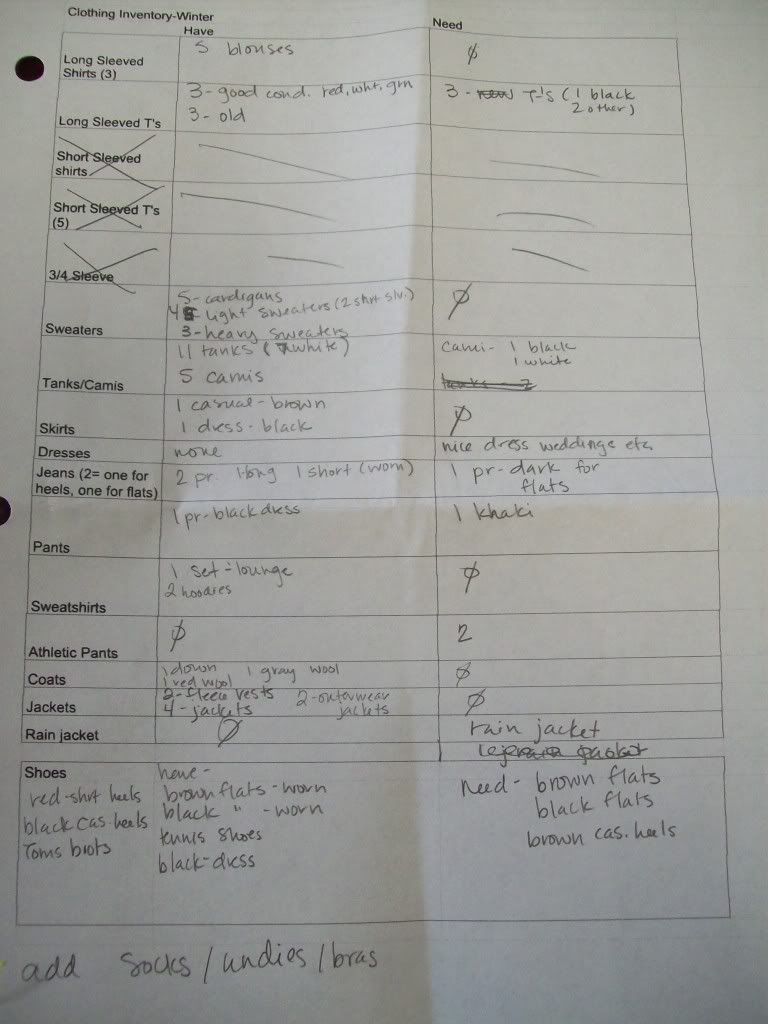 Clothing Inventory-Winter
Have Need
Long Sleeved Shirts (3) 5 blouses ∅
Long Sleeved T's 3- good cond. red, wht, grn 3 - new T-'s (1 black
3 - old 2 other)
Short Sleeved shirts
Short Sleeved T's (5)
3/4 Sleeve
Sweaters 5- cardigans ∅
4 light sweaters (2 shrt slv.)
3-heavy sweaters
Tanks/Camis 11 tanks (7 white) cami- 1 black
1 white
5 camis tanks - 2
Skirts 1 casual-brown ∅
1 dress-black
Dresses none nice dress weddings etc.
Jeans (2= one for heels, one for flats) 2 pr. 1-long 1 short (worn) 1 pr-dark for
flats
Pants 1 pr-black dress 1 khaki
Sweatshirts 1 set-lounge ∅
2 hoodies
Athletic Pants ∅ 2
Coats 1 down 1 gray wool ∅
1 red wool
Jackets 2-fleece vests 2-outerwear jackets ∅
4-jackets
Rain jacket ∅ rain jacket
Shoes have- need- brown flats
red-shrt heels brown flats-worn black flats
black cas. heels black " -worn brown cas. heels
Toms boots tennis shoes
black-dress
add socks/undies/bras